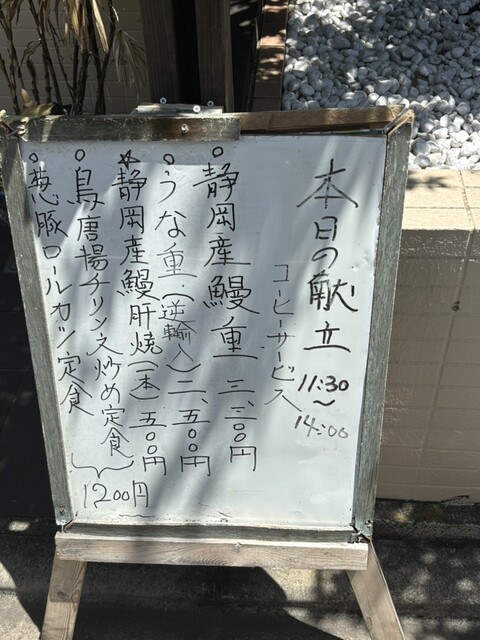 本日の献立 11:30〜14:00
コーヒーサービス
○静岡産鰻重 三、三〇〇円
○うな重(逆輸入)二、五〇〇円
☆静岡産鰻肝焼(一本)五〇〇円
○鳥唐揚チリソース炒め定食
○葱豚ロールカツ定食
1200円